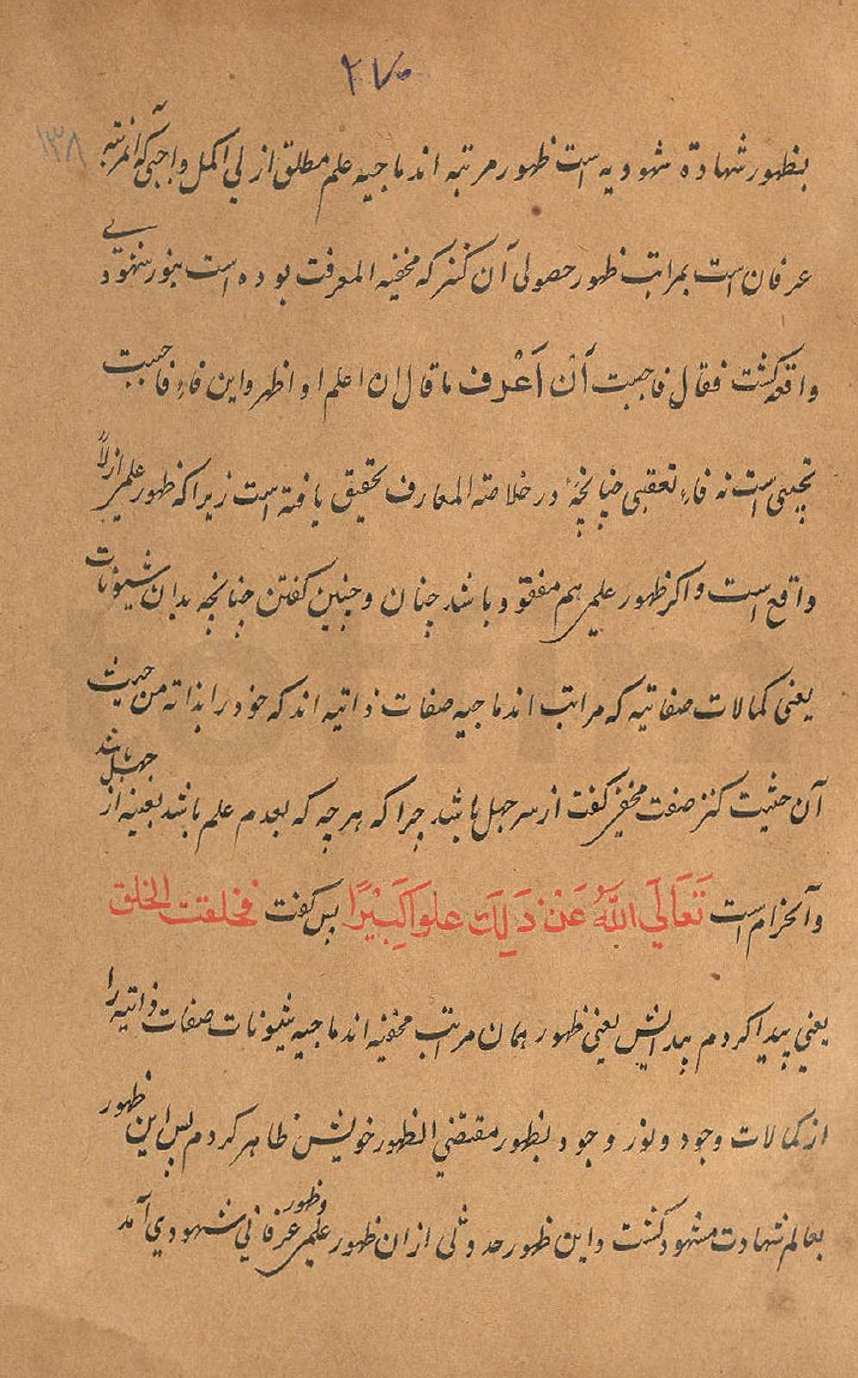 ۲۷۰
۱۳۸
بظهور شهادة شهودیه است ظهور مرتبه اندماجیه علم مطلق ازلی اکمل واجبی که انمرتبه
عرفان است بمراتب ظهور حصولی آن کنز که مخفیه المعرفت بوده است بنور شهودیی
واقعه کشت فقال فاحببت أن أعرف ما قال ان اعلم او اظهر واین فاء فاحببت
است نه فاء تعقبی چنانچه در خلاصة المعارف تحقیق یافته است زیرا که ظهور علمی ازلاً
واقع است واکر ظهور علمی هم مفقود باشد چنان وچنین کفتن چنانچه بدان شیونات
یعنی کمالات صفاتیه که مراتب اندماجیه صفات ذاتیه اند که خود را بذاته من حیث
آن حثیت کنز صفت مخفی کفت از سر جهل باشد چرا که هر چه که بعدم علم باشد بعینه از جهل باشد
وآنحرام است تَعَالَی اللهُ عَنْ ذَلِکَ علوا کَبِیْرًا پس کفت فخلقت الخلق
یعنی پیدا کردم پیدایش یعنی ظهور همان مراتب مخفیه اندماجیه شیونات صفات ذاتیه را
از کمالات وجود ونور وجود بظهور مقتضی الظهور خویش ظاهر کردم پس این ظهور
بعالم شهادت مشهود کشت واین ظهور حدوثی ازان ظهور علمی وظهور عرفانی شهودی آمد